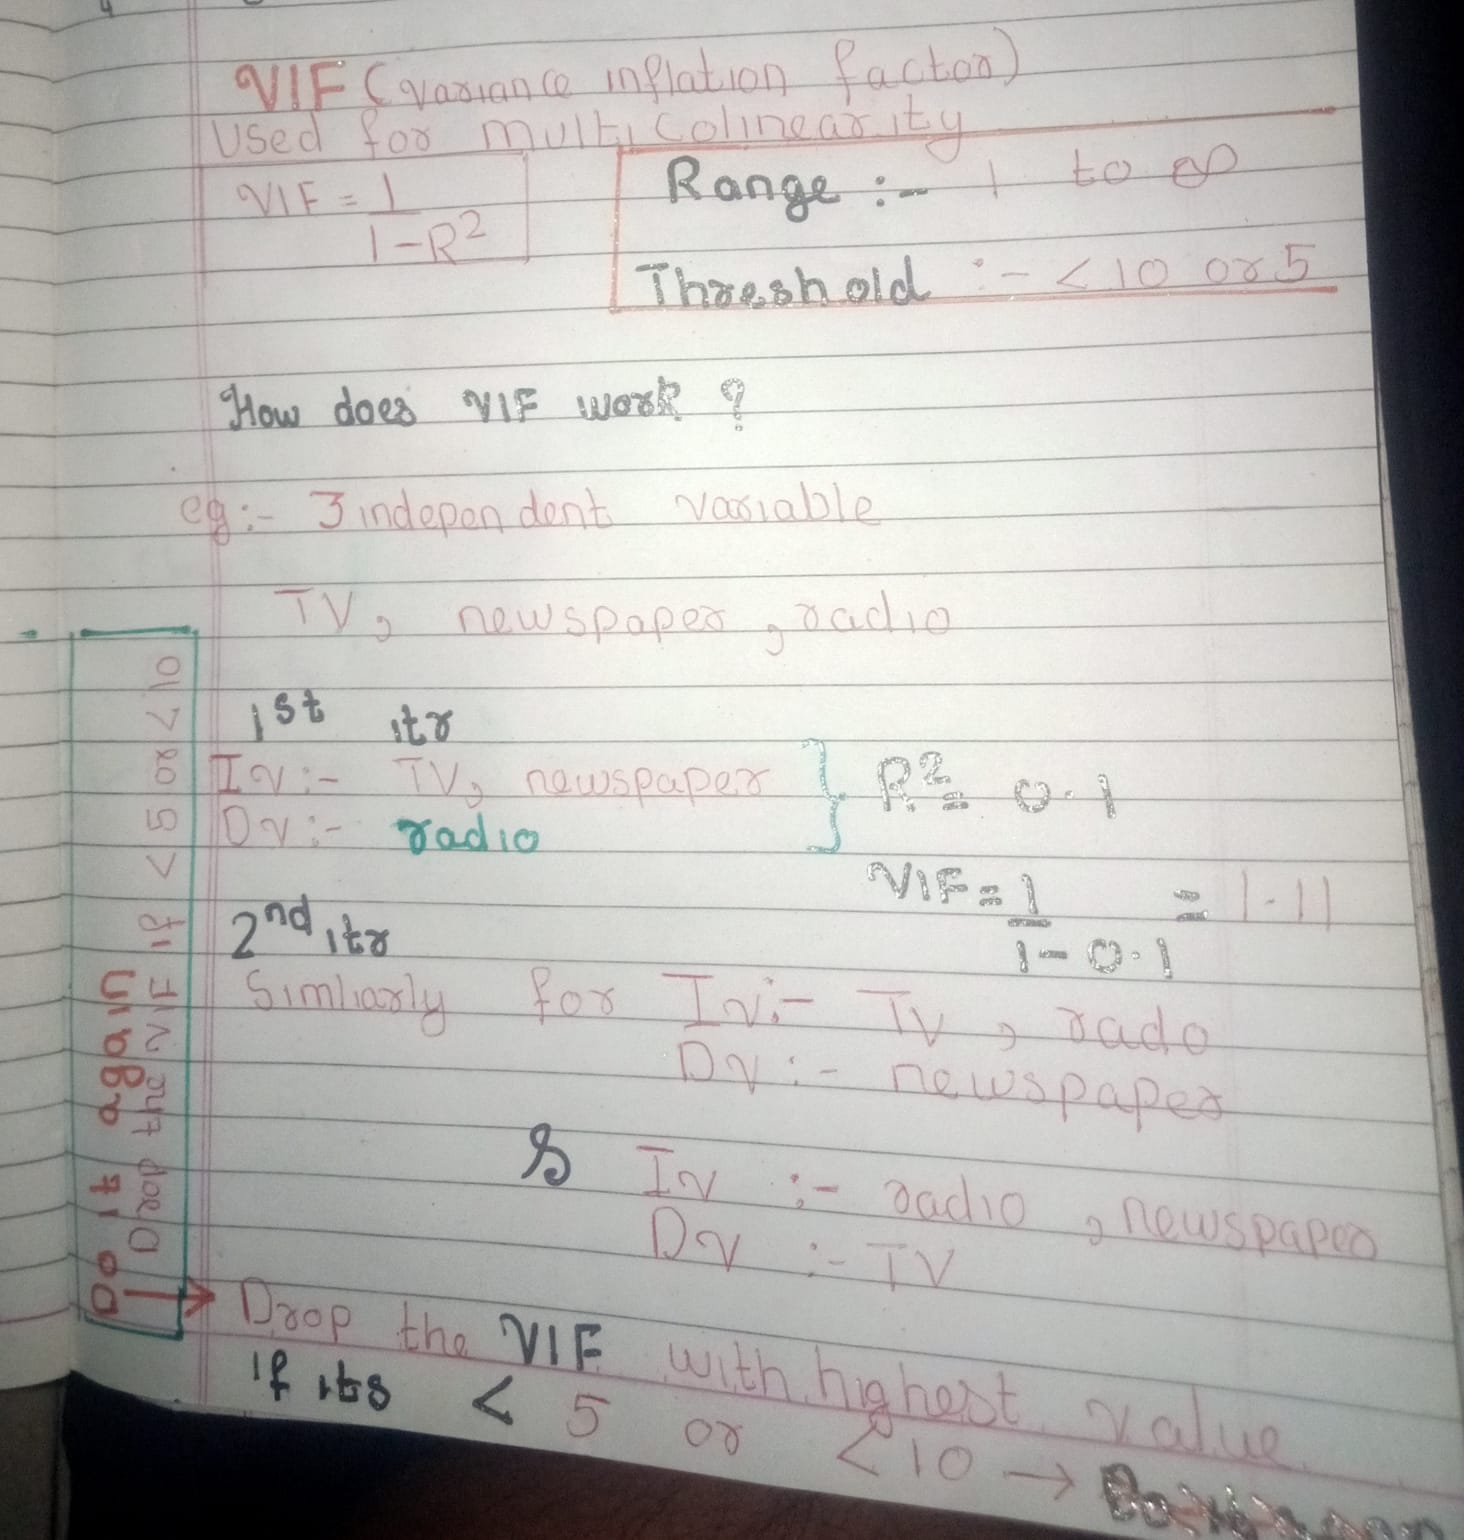 VIF (variance inflation factor)
Used for multicolinearity
VIF = 1
1-R²
Range :- 1 to ∞
Threshold :- <10 or 5
How does VIF work ?
eg:- 3 independent variable
TV, newspaper, radio
1st itr
Iv:- TV, newspaper } R² = 0.1
Dv:- radio
VIF = 1 = 1.11
1-0.1
2nd itr
Simliarly for Iv:- TV, rado
Dv:- newspaper
& Iv :- radio, newspaper
Dv :- TV
Drop the VIF with highest value
if its < 5 or <10 →
Do it again
Drop the VIF if <5 or <10